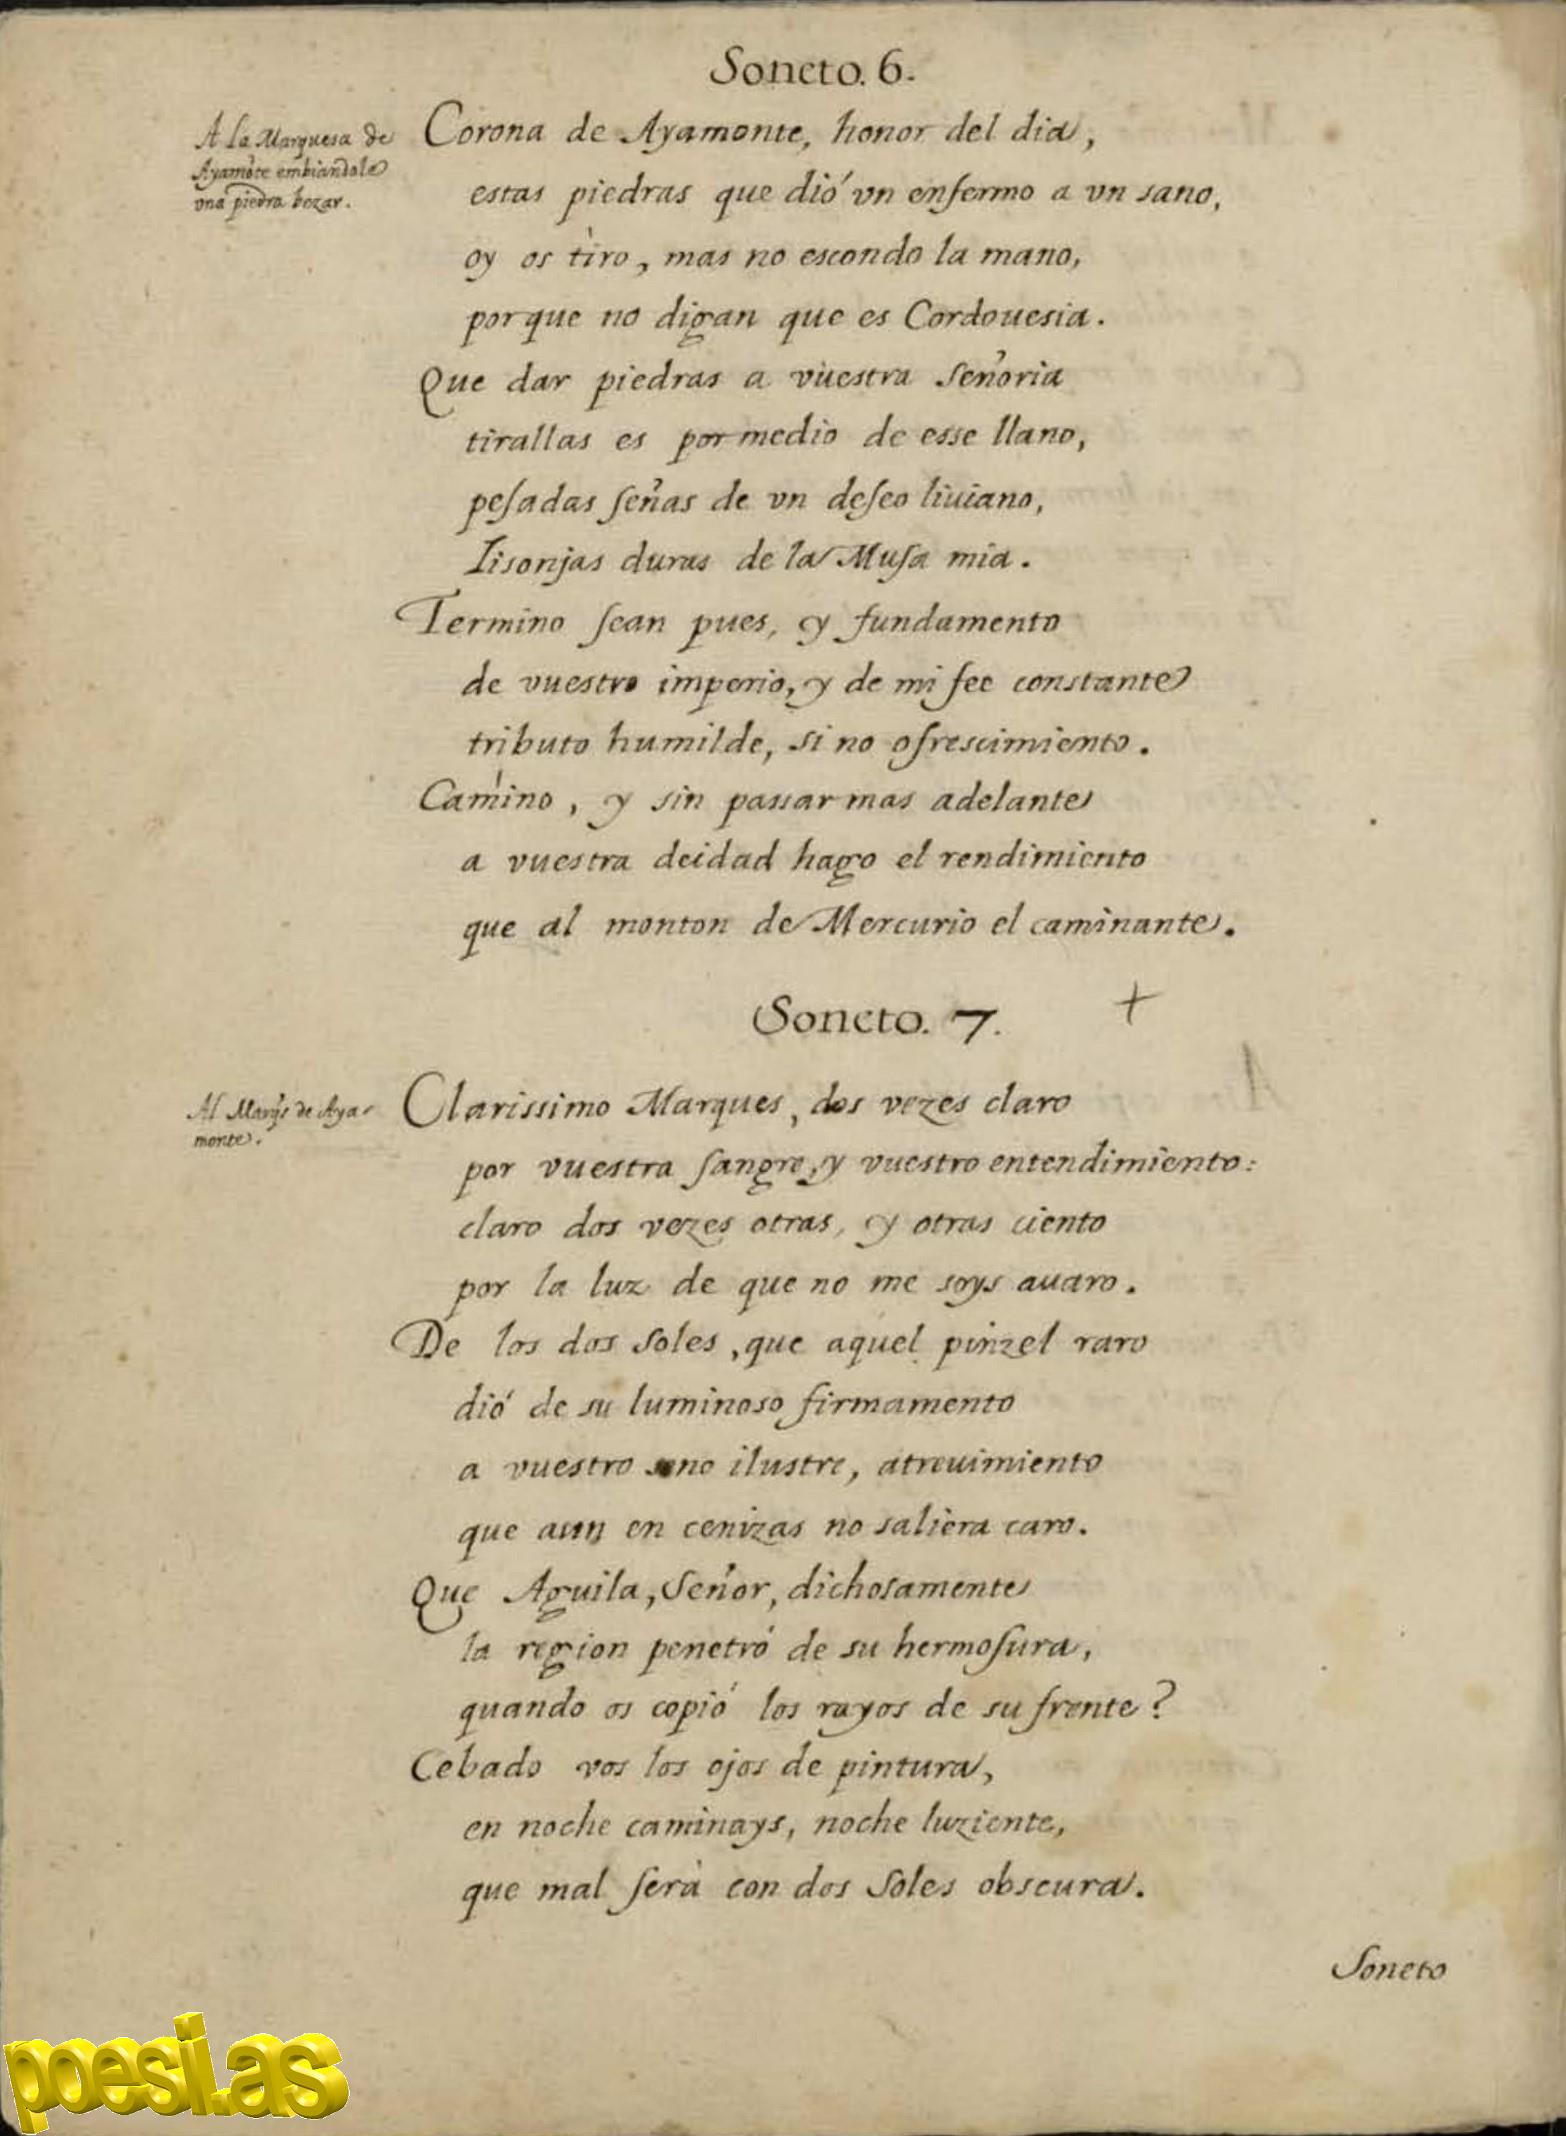 Soneto. 6.
A la Marquesa de
Ayamõte embiandole
vna piedra bezar.
Corona de Ayamonte, honor del dia,
estas piedras que dió vn enfermo a vn sano,
oy os tiro, mas no escondo la mano,
porque no digan que es Cordouesia.
Que dar piedras a vuestra Señoria
tirallas es por medio de esse llano,
peſadas ſeñas de vn deſeo liuiano,
Lisonjas duras de la Muſa mia.
Termino ſean pues, y fundamento
de vuestro imperio, y de mi fee constante
tributo humilde, si no ofrescimiento.
Camino, y sin passar mas adelante
a vuestra deidad hago el rendimiento
que al monton de Mercurio el caminante.
Soneto. 7.
+
Al Marq̃s de Aya-
monte.
Clarissimo Marques, dos vezes claro
por vuestra ſangre, y vuestro entendimiento:
claro dos vezes otras, y otras ciento
por la luz de que no me soys auaro.
De los dos Soles, que aquel pinzel raro
dió de su luminoso firmamento
a vuestro seno ilustre, atreuimiento
que aun en cenizas no saliera caro.
Que Aguila, Señor, dichosamente
la region penetró de su hermoſura,
quando os copió los rayos de su frente?
Cebado vos los ojos de pintura,
en noche caminays, noche luziente,
que mal ſerà con dos Soles obscura.
Soneto
poesi.as